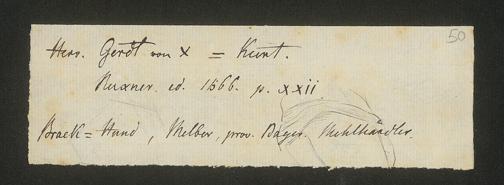 50
Herr. Gerdt von X = Kunt.
Ruxner. ed. 1566. p. xxii
Brack = Hund, Melber, prov. Bayer. Mehlhändler.